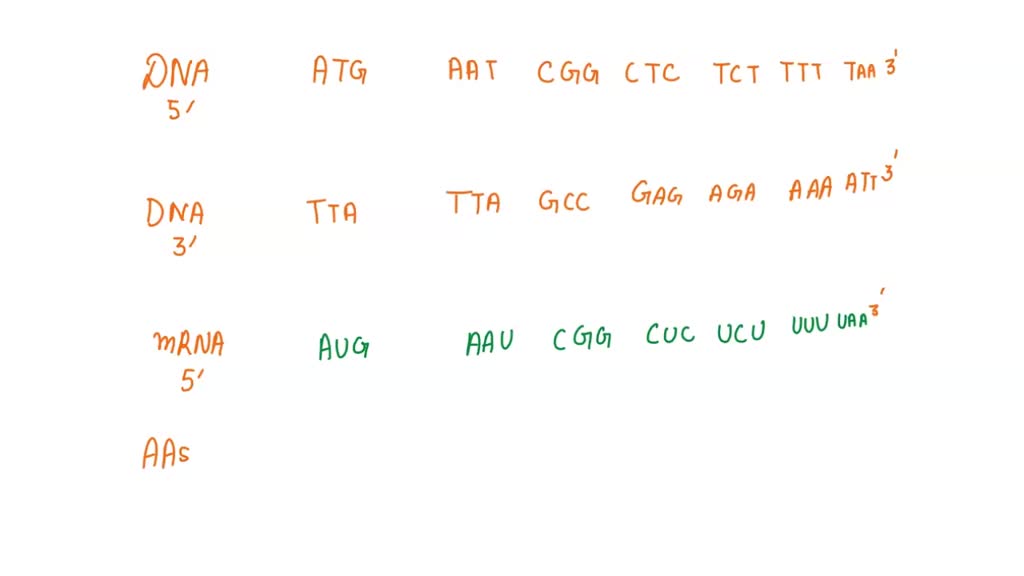 DNA ATG AAT CGG CTC TCT TTT TAA 3'
5'
DNA TTA TTA GCC GAG AGA AAA ATT 3'
3'
mRNA AUG AAU CGG CUC UCU UUU UAA 3'
5'
AAs